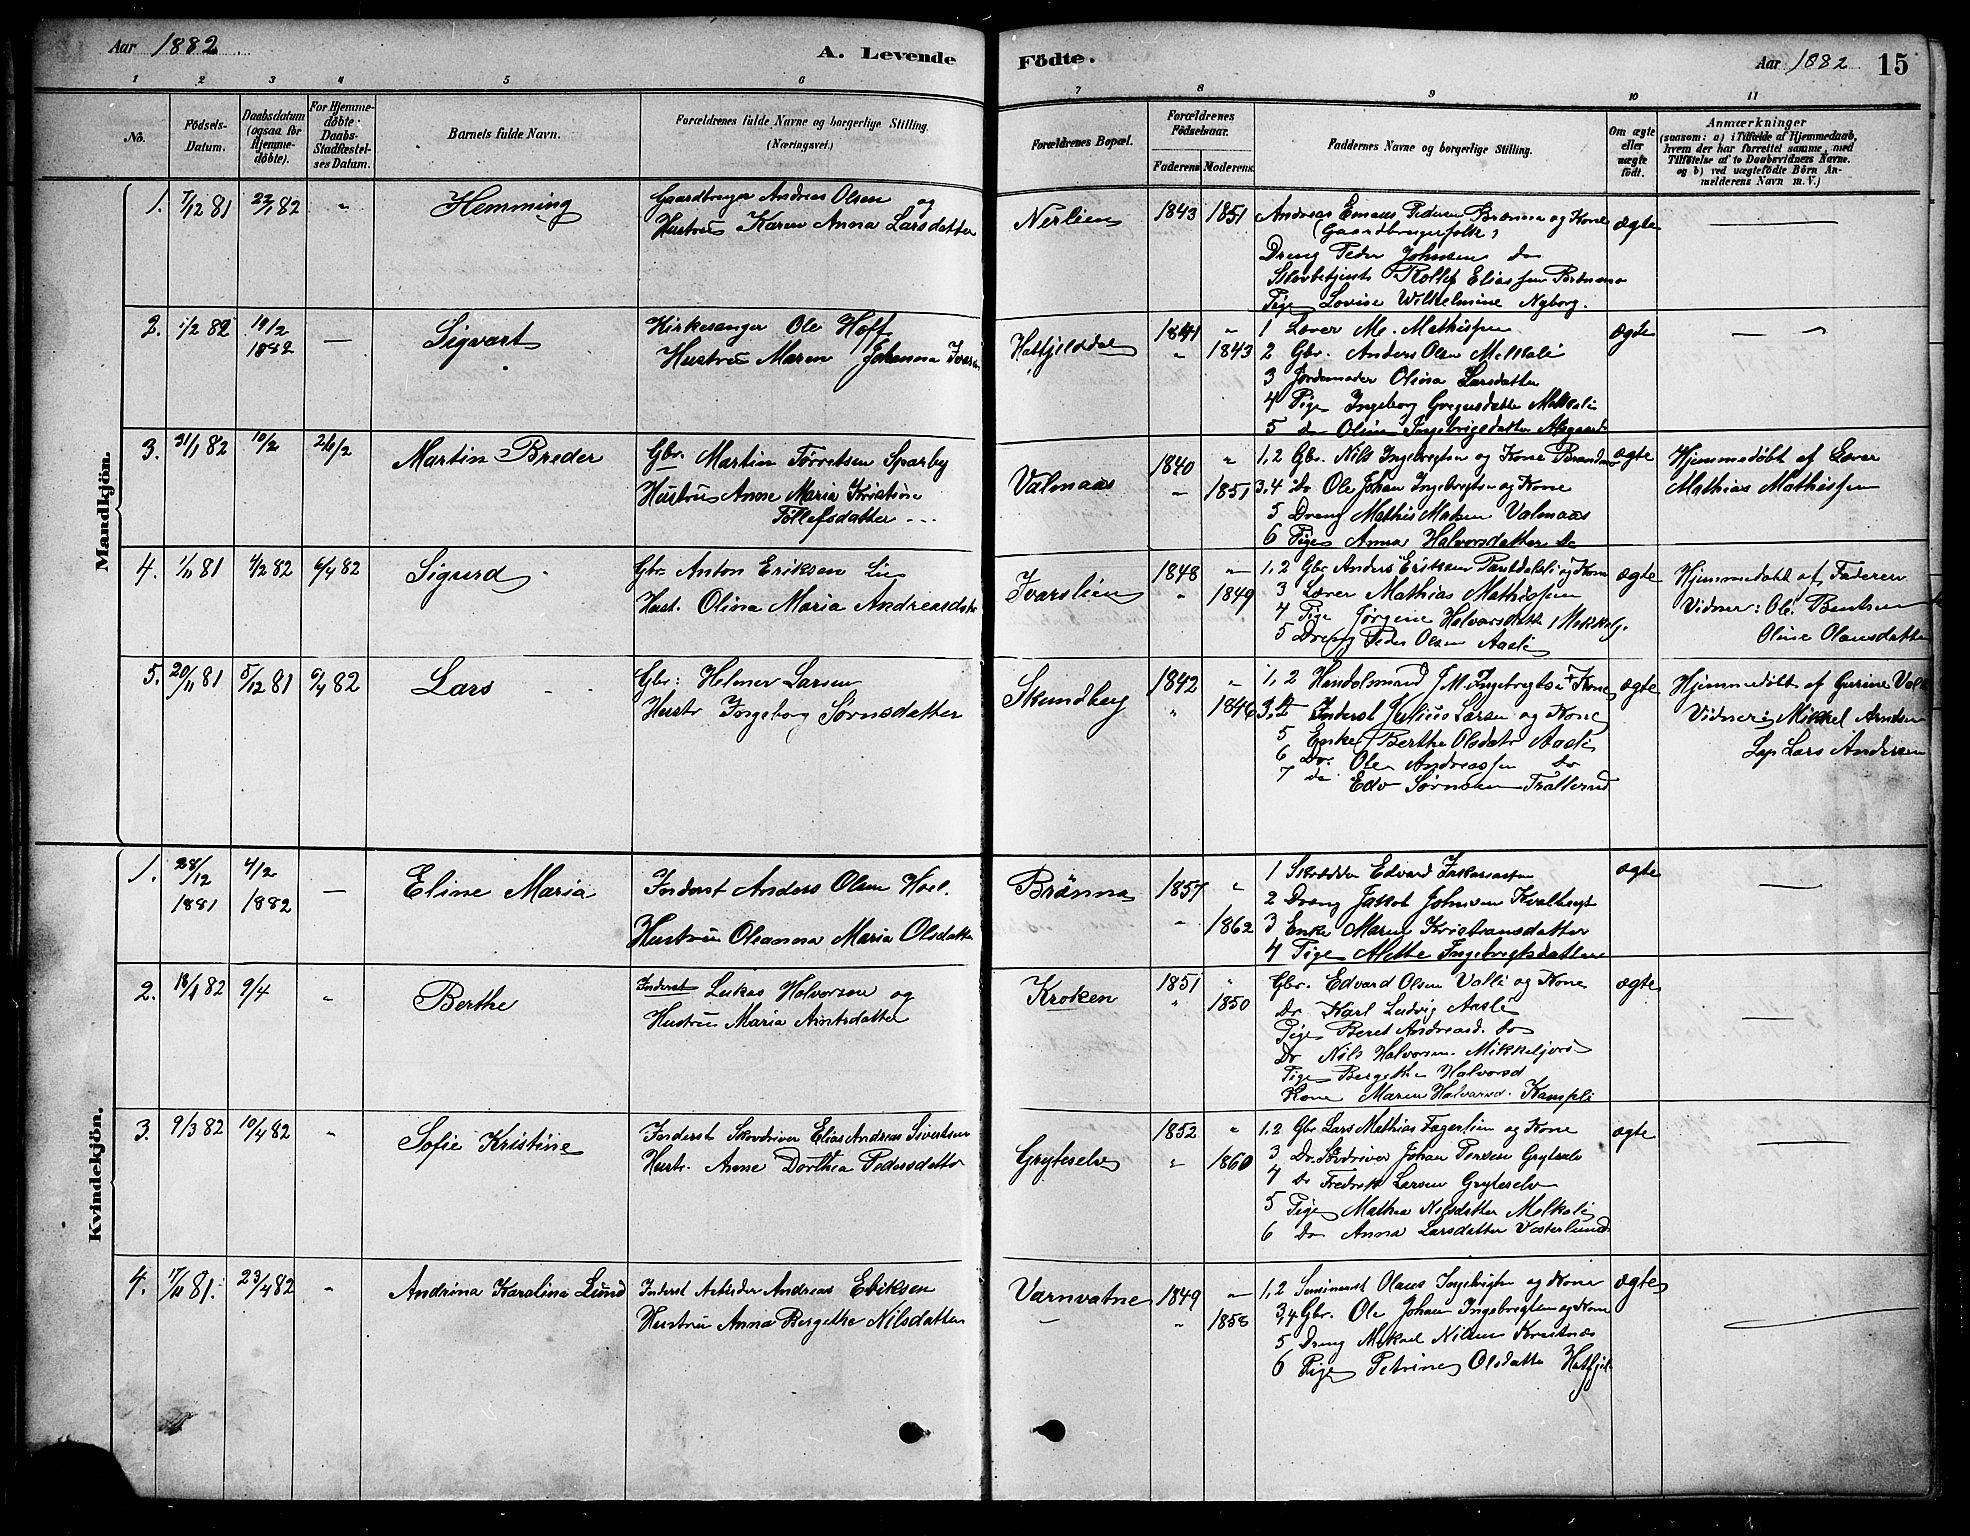 Aar 1882
A. Levende
Födte.
Aar 1882
15
1 2 3 4 5 6 7 8 9 10 11
No.
Födsels-
Datum.
Daabsdatum
(ogsaa for
Hjemme-
döbte).
For Hjemme-
döbte:
Daabs-
Stadfæstel-
ses Datum.
Barnets fulde Navn.
Forældrenes fulde Navne og borgerlige Stilling.
(Næringsvei.)
Forældrenes Bopæl.
Forældrenes
Födselsaar.
Faderens Moderens
Faddernes Navne og borgerlige Stilling.
Om ægte
eller
uægte
født.
Anmærkninger
(saasom: a) i Tilfælde af Hjemmedaab,
hvem der har forrettet samme, med
Tilföielse af to Daabsvidners Navne.
og b) ved uægtefödte Börn An-
melderens Navn m. V.)
Mandkjön.
1. 7/12 81 22/1 82 " Hemming
Gaardbruger Andreas Olsen og
Hustru Karen Anna Larsdatter
Nerlien 1843 1851
Andreas Emaus Pedersen Brønmo og Kone
(Gaardbrugerfolk)
Dreng Peder Johnsen do
Skovbetjent Rollef Eliassen Brønmo
Pige Lovise Wilhelmine Nyborg.
ægte
2. 1/2 82 19/2
1882 — Sigvart
Kirkesanger Ole Hoff
Hustru Maren Johanna
Hatfjelddal 1841 "
" 1843
1 Lærer M. Mathissen
2 Gbr. Anders Olsen Melkeli
3 Jordemoder Olina Larsdatter
4 Pige Ingeborg Gregusdatter
5 do Olina Ingebrigtsdatter
ægte
3. 31/1 82 10/2 26/2 Martin Breder
Gbr. Martin Tørretsen Sparby
Hustru Anne Maria Kristine
Tollefsdatter
Valmaas 1840 "
" 1851
1,2 Gbr. Nils Ingebrigtsen og Kone
3.4 do Ole Johan Ingebrigtsen og Kone
5 Dreng Mathis Valmaas
6 Pige Anna Halvorsdatter do
ægte
Hjemmedøbt af Lærer
Mathias Mathissen
4. 1/11 81 4/2 82 6/4 82 Sigurd
Gbr Anton Eriksen Lie
Hust. Olina Maria Andreasdatr
Ivarslien 1848 "
" 1849
1,2 Gbr Anders Eriksen og Kone
3 Lærer Mathias Mathissen
4 Pige Jørgine Halvorsdatt
5 Dreng Peder Olsen Aasli
ægte
Hjemmedøbt af Faderen
Vidner: Ole Bentsen
Oline Olausdatter
5. 20/11 81 5/12 81 6/4 82 Lars
Gbr: Helmer Larsen
Hustr Ingeborg Sørnsdatter
Skundberg 1842 "
" 1846
1,2 Handelsmand J M Ingebrigtsen + Kone
3,4 Inderst Julius Larsen og Kone
5 Enke Berthe Olsdatr Aasli
6 Dr. Ole Andreassen do
7 do Edv Sørnsen
ægte
Hjemmedøbt af Gurine
Vidner: Mikkel Arntsen
Lars Andersen
Kvindekjön.
1. 28/12
1881 4/2
1882 — Eline Maria
Inderst Anders Olsen Hoel.
Hustru Oleanna Maria Olsdatter
Brønmo 1857 "
" 1862
1 Skrædder Edvard Zakariassen
2 Dreng Jakob Johnsen
3 Enke Maren Kristiansdatter
4 Pige Alette Ingebrigtsdatter
ægte
2. 82 9/4 " Berthe
Inderst Lukas Halvorsen og
Hustru Maria Arntsdatter
Kroken 1851 "
" 1850
Gbr. Edvard Olsen Valli og Kone
Dr Karl Ludvig Aasli
Pige Beret Andreasd. do
Dr Nils Halvorsen
Pige Bergethe Halvorsd
Kone Maren Halvorsd.
ægte
3. 9/3 82 10/4 82 " Sofie Kristine
Inderst Skovdriver Elias Andreas Sivertsen
Hustr. Anne Dorthea Pedersdatter
Gryteselv 1852 "
" 1860
1,2 Gbr Lars Mathias Fagerlien og Kone
3 Dr. Johan
4 Dr Fredrik Larsen Gryteselv
5 Pige Mathea Nilsdatter
6 Do Anna Larsdatter Vesterlund
ægte
4. 17/11 81. 23/4 82 " Andrina Karolina Lund
Inderst Arbeider Andreas Eriksen
Hustru Anna Bergethe Nilsdatter
Varnvatne 1849 "
" 1858
1,2 Olaus Ingebrigtsen og Kone
3,4 Gbr. Ole Johan Ingebrigtsen og Kone
5 Dreng Mikael Nilsen
6 Pige Petrine Olsdatter
ægte